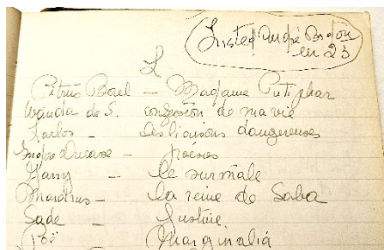 en 23
Petrus Borel – Madame Putiphar
Wanda de S. confession de ma vie
Laclos – Les liaisons dangereuses
Ducasse – poésies
Jarry – Le surmâle
Mardrus – La reine de Saba
Sade – Justine
Poë Marginalia